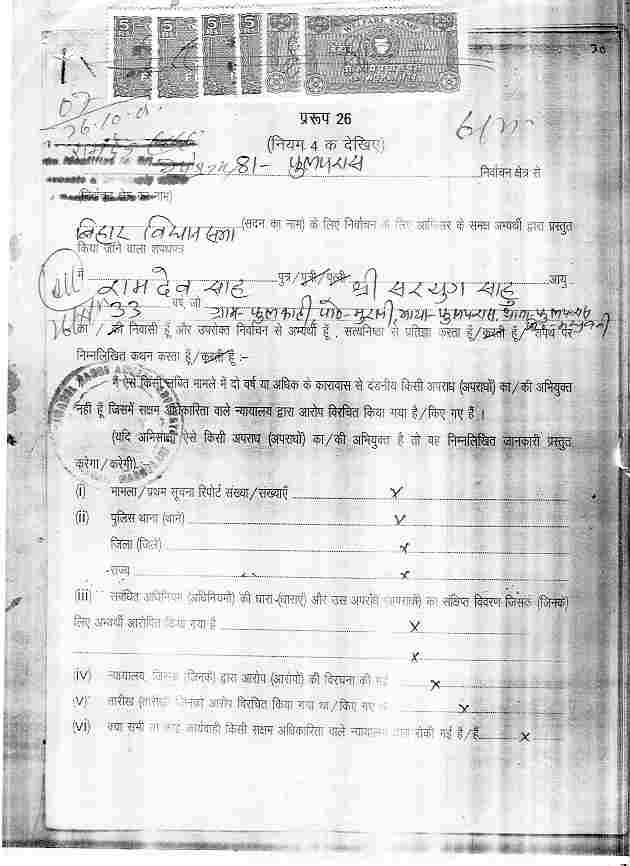 WELFARE STAMP
5 5 5 5
20
प्ररूप 26
(नियम 4 क देखिए)
26-10-0
81- फुलपरास निर्वाचन क्षेत्र से
(निर्वाचन क्षेत्र का नाम)
बिहार विधान सभा (सदन का नाम) के लिए निर्वाचन के लिए आफिसर के समक्ष अभ्यर्थी द्वारा प्रस्तुत
किया जाने वाला शपथपत्र
मैं राम देव साह पुत्र/पुत्री/पत्नी श्री सरयुग साहु आयु
33 वर्ष, जो ग्राम- फुलकाही, पो०- मुरली, भाया- फुलपरास, थाना- फुलपरास
का / की निवासी हूँ और उपरोक्त निर्वाचन से अभ्यर्थी हूँ, सत्यनिष्ठा से प्रतिज्ञा करता हूँ/करती हूँ/ शपथ पर
निम्नलिखित कथन करता हूँ/करती हूँ :-
मैं ऐसे किसी लंबित मामले में दो वर्ष या अधिक के कारावास से दंडनीय किसी अपराध (अपराधों) का/की अभियुक्त
नहीं हूँ जिसमें सक्षम अधिकारिता वाले न्यायालय द्वारा आरोप विरचित किया गया है/किए गए हैं ।
(यदि अभिसाक्षी ऐसे किसी अपराध (अपराधों) का/की अभियुक्त है तो वह निम्नलिखित जानकारी प्रस्तुत
करेगा/करेगी)
(i) मामला/प्रथम सूचना रिपोर्ट संख्या/संख्याएँ x
(ii) पुलिस थाना (थाने) x
जिला (जिले) x
राज्य x
(iii) संबंधित अधिनियम (अधिनियमों) की धारा-(धाराएं) और उस अपराध (अपराधों) का संक्षिप्त विवरण जिसके (जिनके)
लिए अभ्यर्थी आरोपित किया गया है x
x
(iv) न्यायालय, जिसके (जिनके) द्वारा आरोप (आरोपों) की विरचना की गई x
(v) तारीख (तारीखें) जिनको आरोप विरचित किया गया था/किए गए थे x
(vi) क्या सभी या कोई कार्यवाही किसी सक्षम अधिकारिता वाले न्यायालय द्वारा रोकी गई है/हैं x